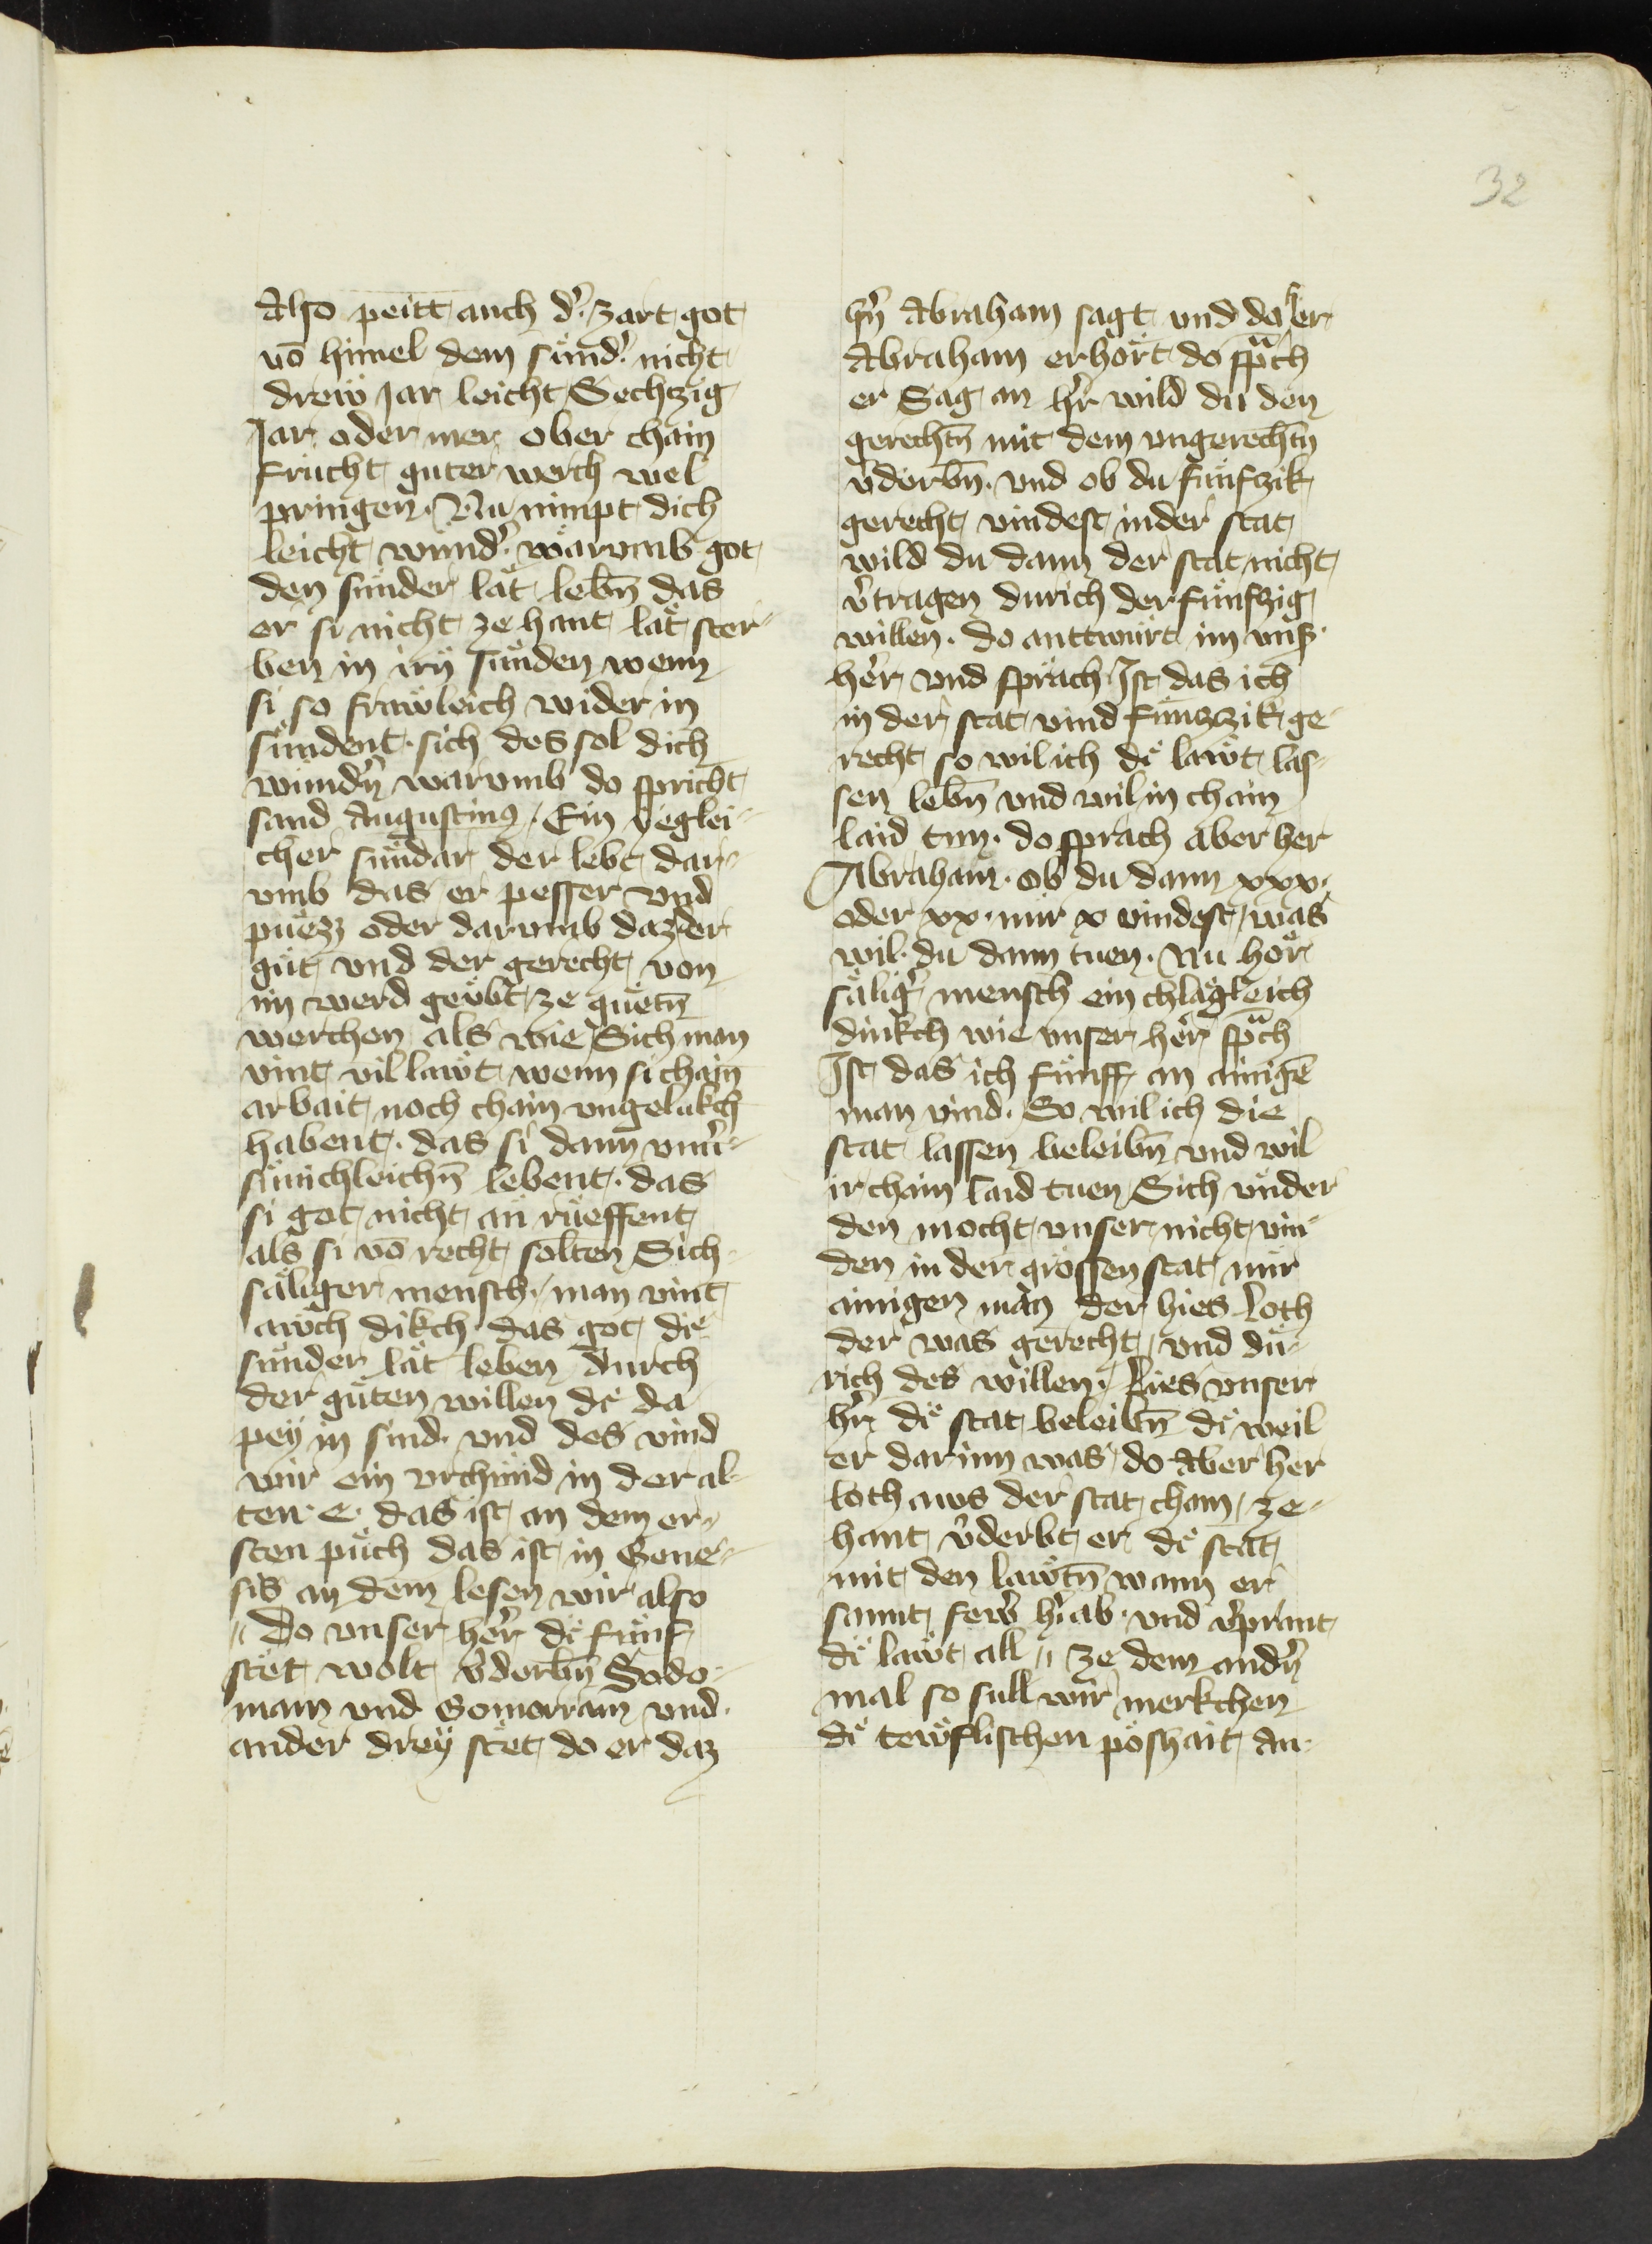 32
Also peitt auch d͛ zart got
vō himel dem sünd͛ nicht
drew Jar leicht Sechtzig
Jar oder mer ober chain
frücht guter werch wel
pringen. Nu nimpt dich
leicht wund͛ warvmb got
den sünder lät lebn̄ das
er si nicht ze hant lät ster-
ben in irn̄ sünden wenn
si so frawleich wider in
sündent. sich des sol dich
wundn̄ warvmb do spricht
sand Augustinus. Ein yeglei-
cher sündar der lebt dar-
vmb das er pesser vnd
puezz oder darvmb daz der
güt vnd der gerecht von
im werd geübt ze guetn̄
werchen als wie Sich man
vint vil lawt wenn si chain
arbait noch chain vngelukch
habent. das si dann vnu͛-
sunichleichn̄ lebent. das
si got nicht an rüeffent
als si vō recht solten Sich
säliger mensch. man vint
awch dikch das got di
sünder lät leben durch
der güten willen di da
pey in sind. vnd des vind
wir ein vrchünd in der al-
ten e. das ist an dem er-
sten püch das ist in Gene-
sis an dem lesen wir also
Do vnser her di fünf
stet wolt v͛derbn̄ Sodo-
mam vnd Gomorram vnd
ander drey stet do er daz
hn̄ Abraham sagt vnd do her
Abraham erhört do spᵃch
er Sag an hr̄ wild du den
gerechtn̄ mit dem vngerechtn̄
v͛derbn̄. vnd ob du fünfczik
gerecht vindest in der stat
wild du dann der stat nicht
v͛tragen durich der fünfzig
willen. do anttwürt im vns͛
her vnd sprach Ist das ich
in der stat vind fünzzik ge-
recht so wil ich di lawt las-
sen lebn̄ vnd wil in chain
laid tun. do sprach aber her
Abraham. ob du dann xxx.
oder xx. nür x vindest was
wil du dann tuen. Nu hör
sälig͛ mensch ein chlägleich
dinkch wie vnser her spᵃch
Ist das ich fünff an ainigē
man vind. So wil ich die
stat lassen beleibn̄ vnd wil
ir chain laid tuen Sich vnder
den mocht vnser nicht vin-
den in der grossen stat nür
ainigen man der hies Loth
der was gerecht vnd du-
rich des willen. Lies vnser
hr̄ di stat beleibn̄ di weil
er darinn was do Aber her
loth aws der stat cham ze-
hant v͛derbt er di stat
mit den lawtn̄ wann er
sannt fewr h͛ab. vnd v͛prant
di lawt all ze dem andn̄
mal so süll wir merkchen
di tewflischen poshait An-